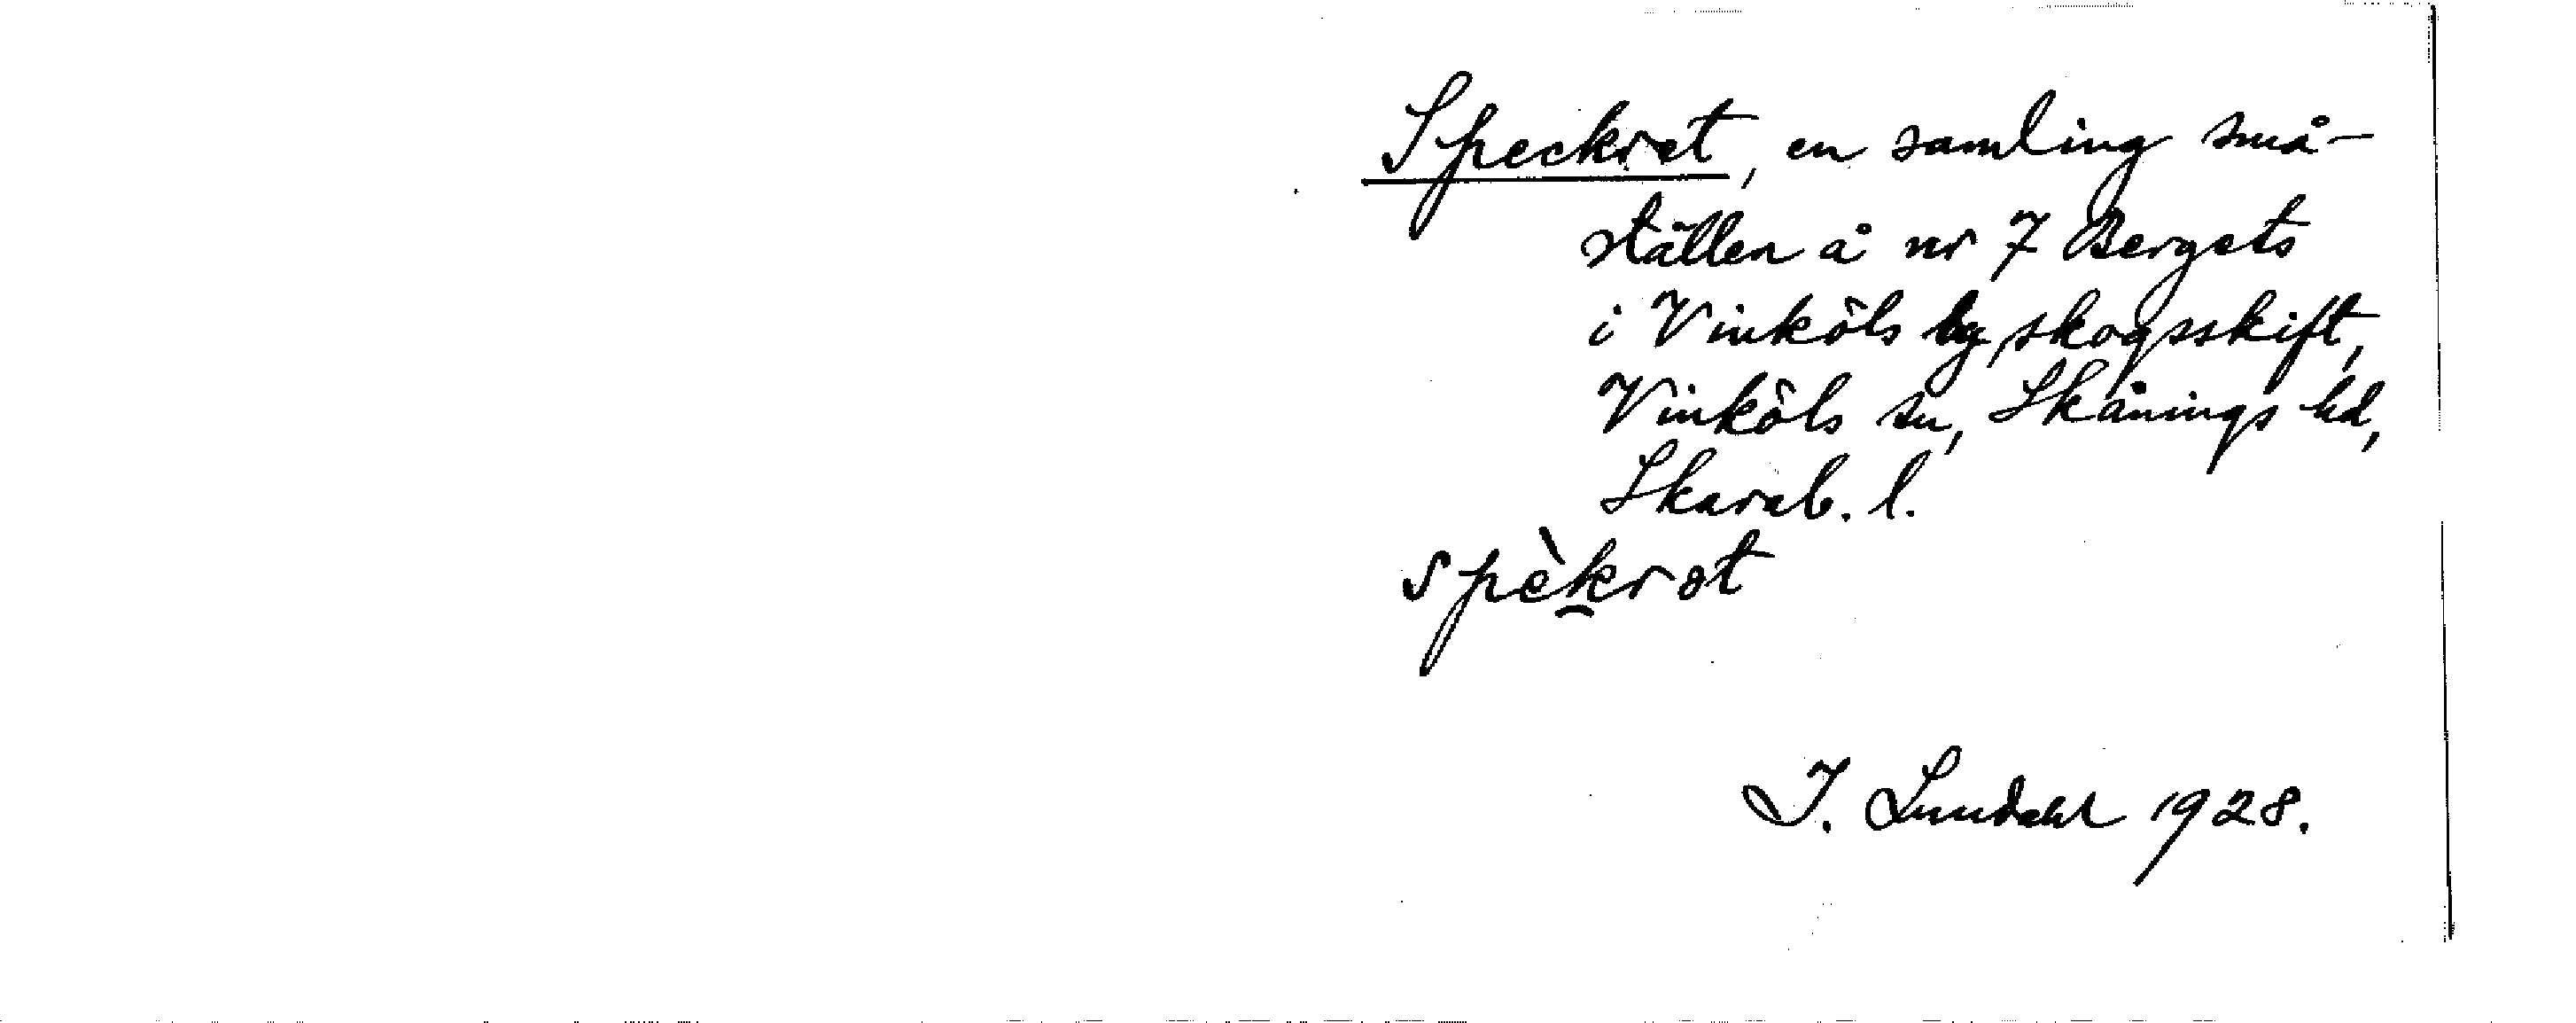 Speckret, en samling små-
ställen å nr 7 Bergets
i Vinköls by, skogsskift,
Vinköls sn, Skånings hd,
Skarab. l.
spèkrət
I. Lundahl 1928.